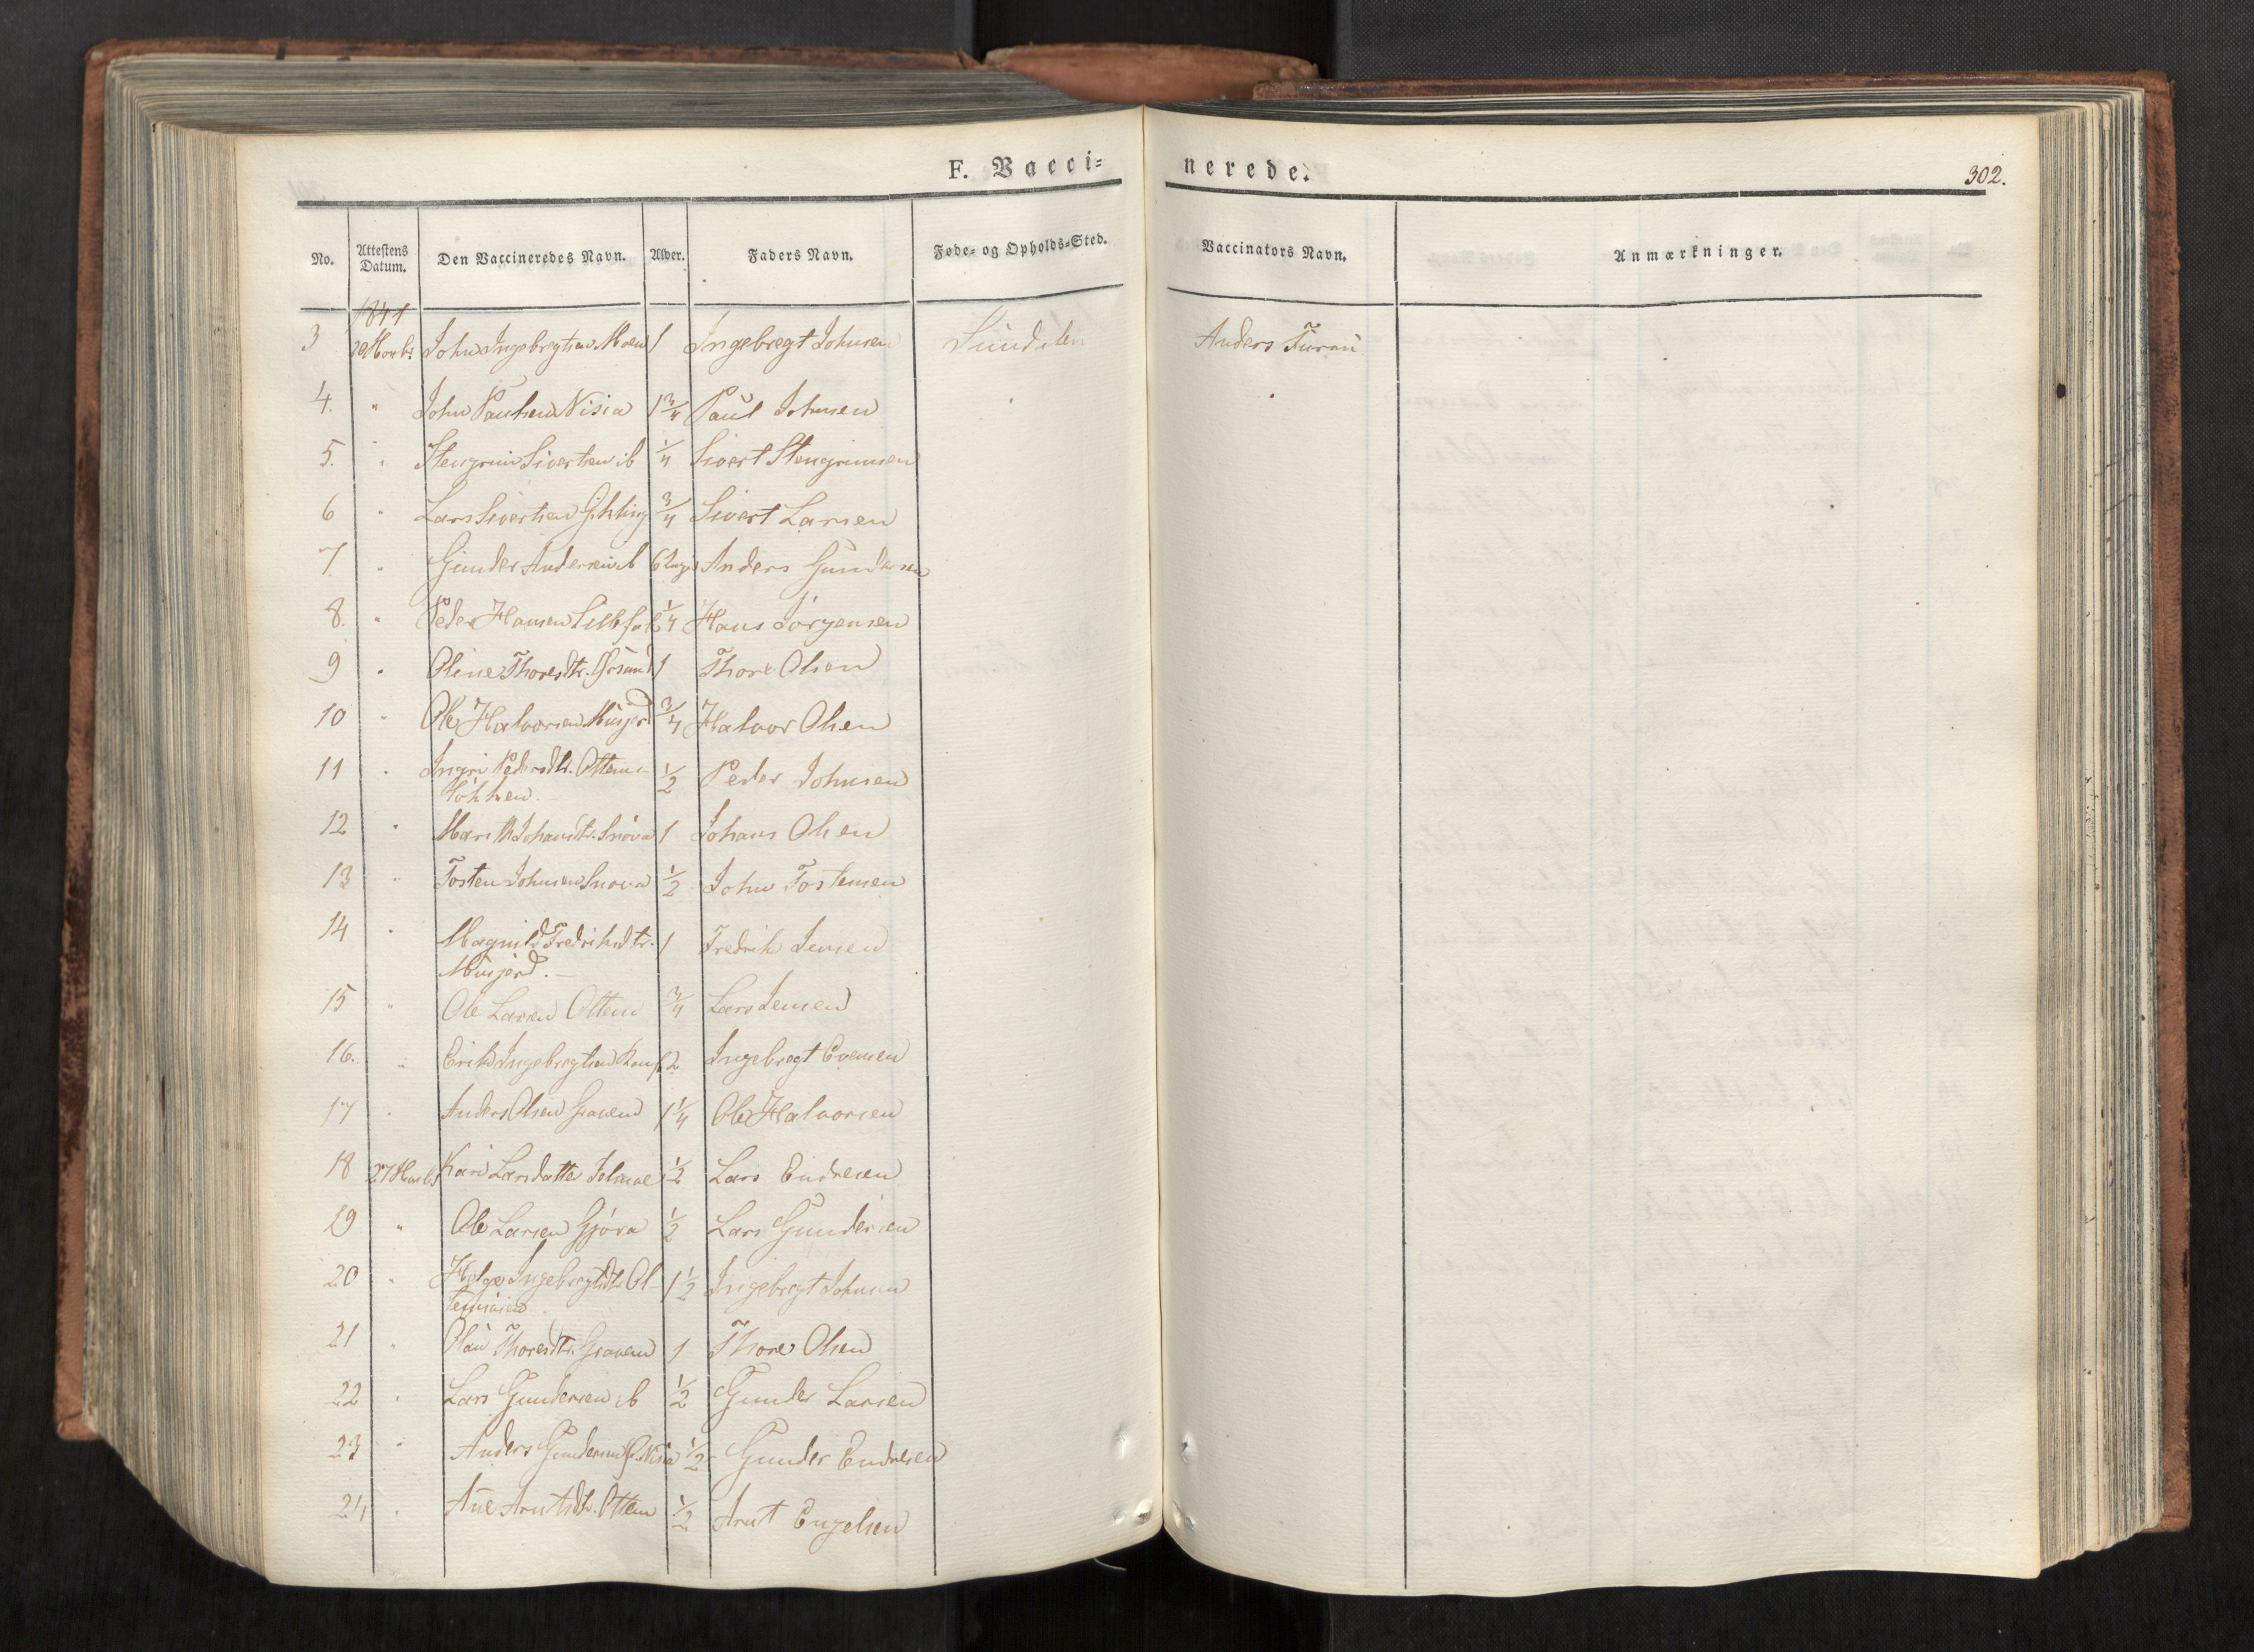 F. Vacci=
nerede.
302.
No. Attestens Datum. Den Vaccineredes Navn. Alder. Faders Navn. Føde- og Opholds=Sted. Vaccinators Navn. Anmærkninger.
1841
3 John Ingebregtsen Moen 1 Ingebregt Johnsen Sundalen Anders Furuu
4. " John Paulsen Nisia 1 3/4 Paul Johnsen
5. " Stengrim Sivertsen ib 1/4 Sivert Stengrimsen
6 " Lars Sivertsen 3/4 Sivert Larsen
7 " Gunder Andersen ib 6 Anders Gundersen
8. " Peder Hansen 1/4 Hans Jörgensen
9 " Oline Thoresdtr. 1 Thore Olsen
10 " Ole Halvorsen Musjerd 3/4 Halvor Olsen
11 " Ingri Pedersdtr. Ottems- 1/2 Peder Johnsen
12 " Marit Johansdtr. Snöva 1 Johans Olsen
13 " Tosten Johnsen Snöva 1/2 John Tostensen
14 " Magnild Fredriksdtr. 1 Fredrik Jensen
Musjerd.
15 " Ole Larsen Ottem 3/4 Lars Jensen
16. " Erik Ingebregtsen 2 Ingebregt Evensen
17 " Anders Olsen Gravem 1 1/4 Ole Halvorsen
18 27 Kari Larsdatter 1/2 Lars Endresen
19 " Ole Larsen Gjöra 1/2 Lars Gundersen
20 " Helge Ingebregtsdtr. 1 1/2 Ingebregt Johnsen
21 " Thoresdtr. Gravem 1 Thore Olsen
22 " Lars Gundersen ib 1/2 Gunder Larsen
23 " Anders Gundersen 1/2 Gunder Endresen
24 " Ane Arntsdtr. Ottem 1/2 Arnt Engelsen